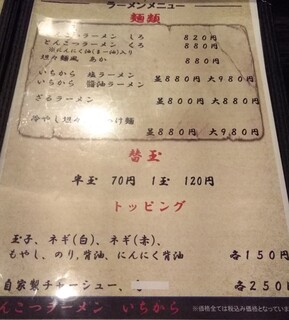 ラーメンメニュー
麺類
ラーメン しろ 820円
とんこつラーメン くろ 880円
※にんにく油(まー油)入り
担々麺風 あか 880円
いちから 塩ラーメン
いちから 醤油ラーメン 並880円 大980円
ざるラーメン 並800円 大880円
冷やし担々 つけ麺
並880円 大980円
替玉
半玉 70円 1玉 120円
トッピング
玉子、ネギ(白)、ネギ(赤)、
もやし、のり、背油、にんにく背油 各150円
自家製チャーシュー、 各250円
んこつラーメン いちから ※価格全ては税込み価格となっていま